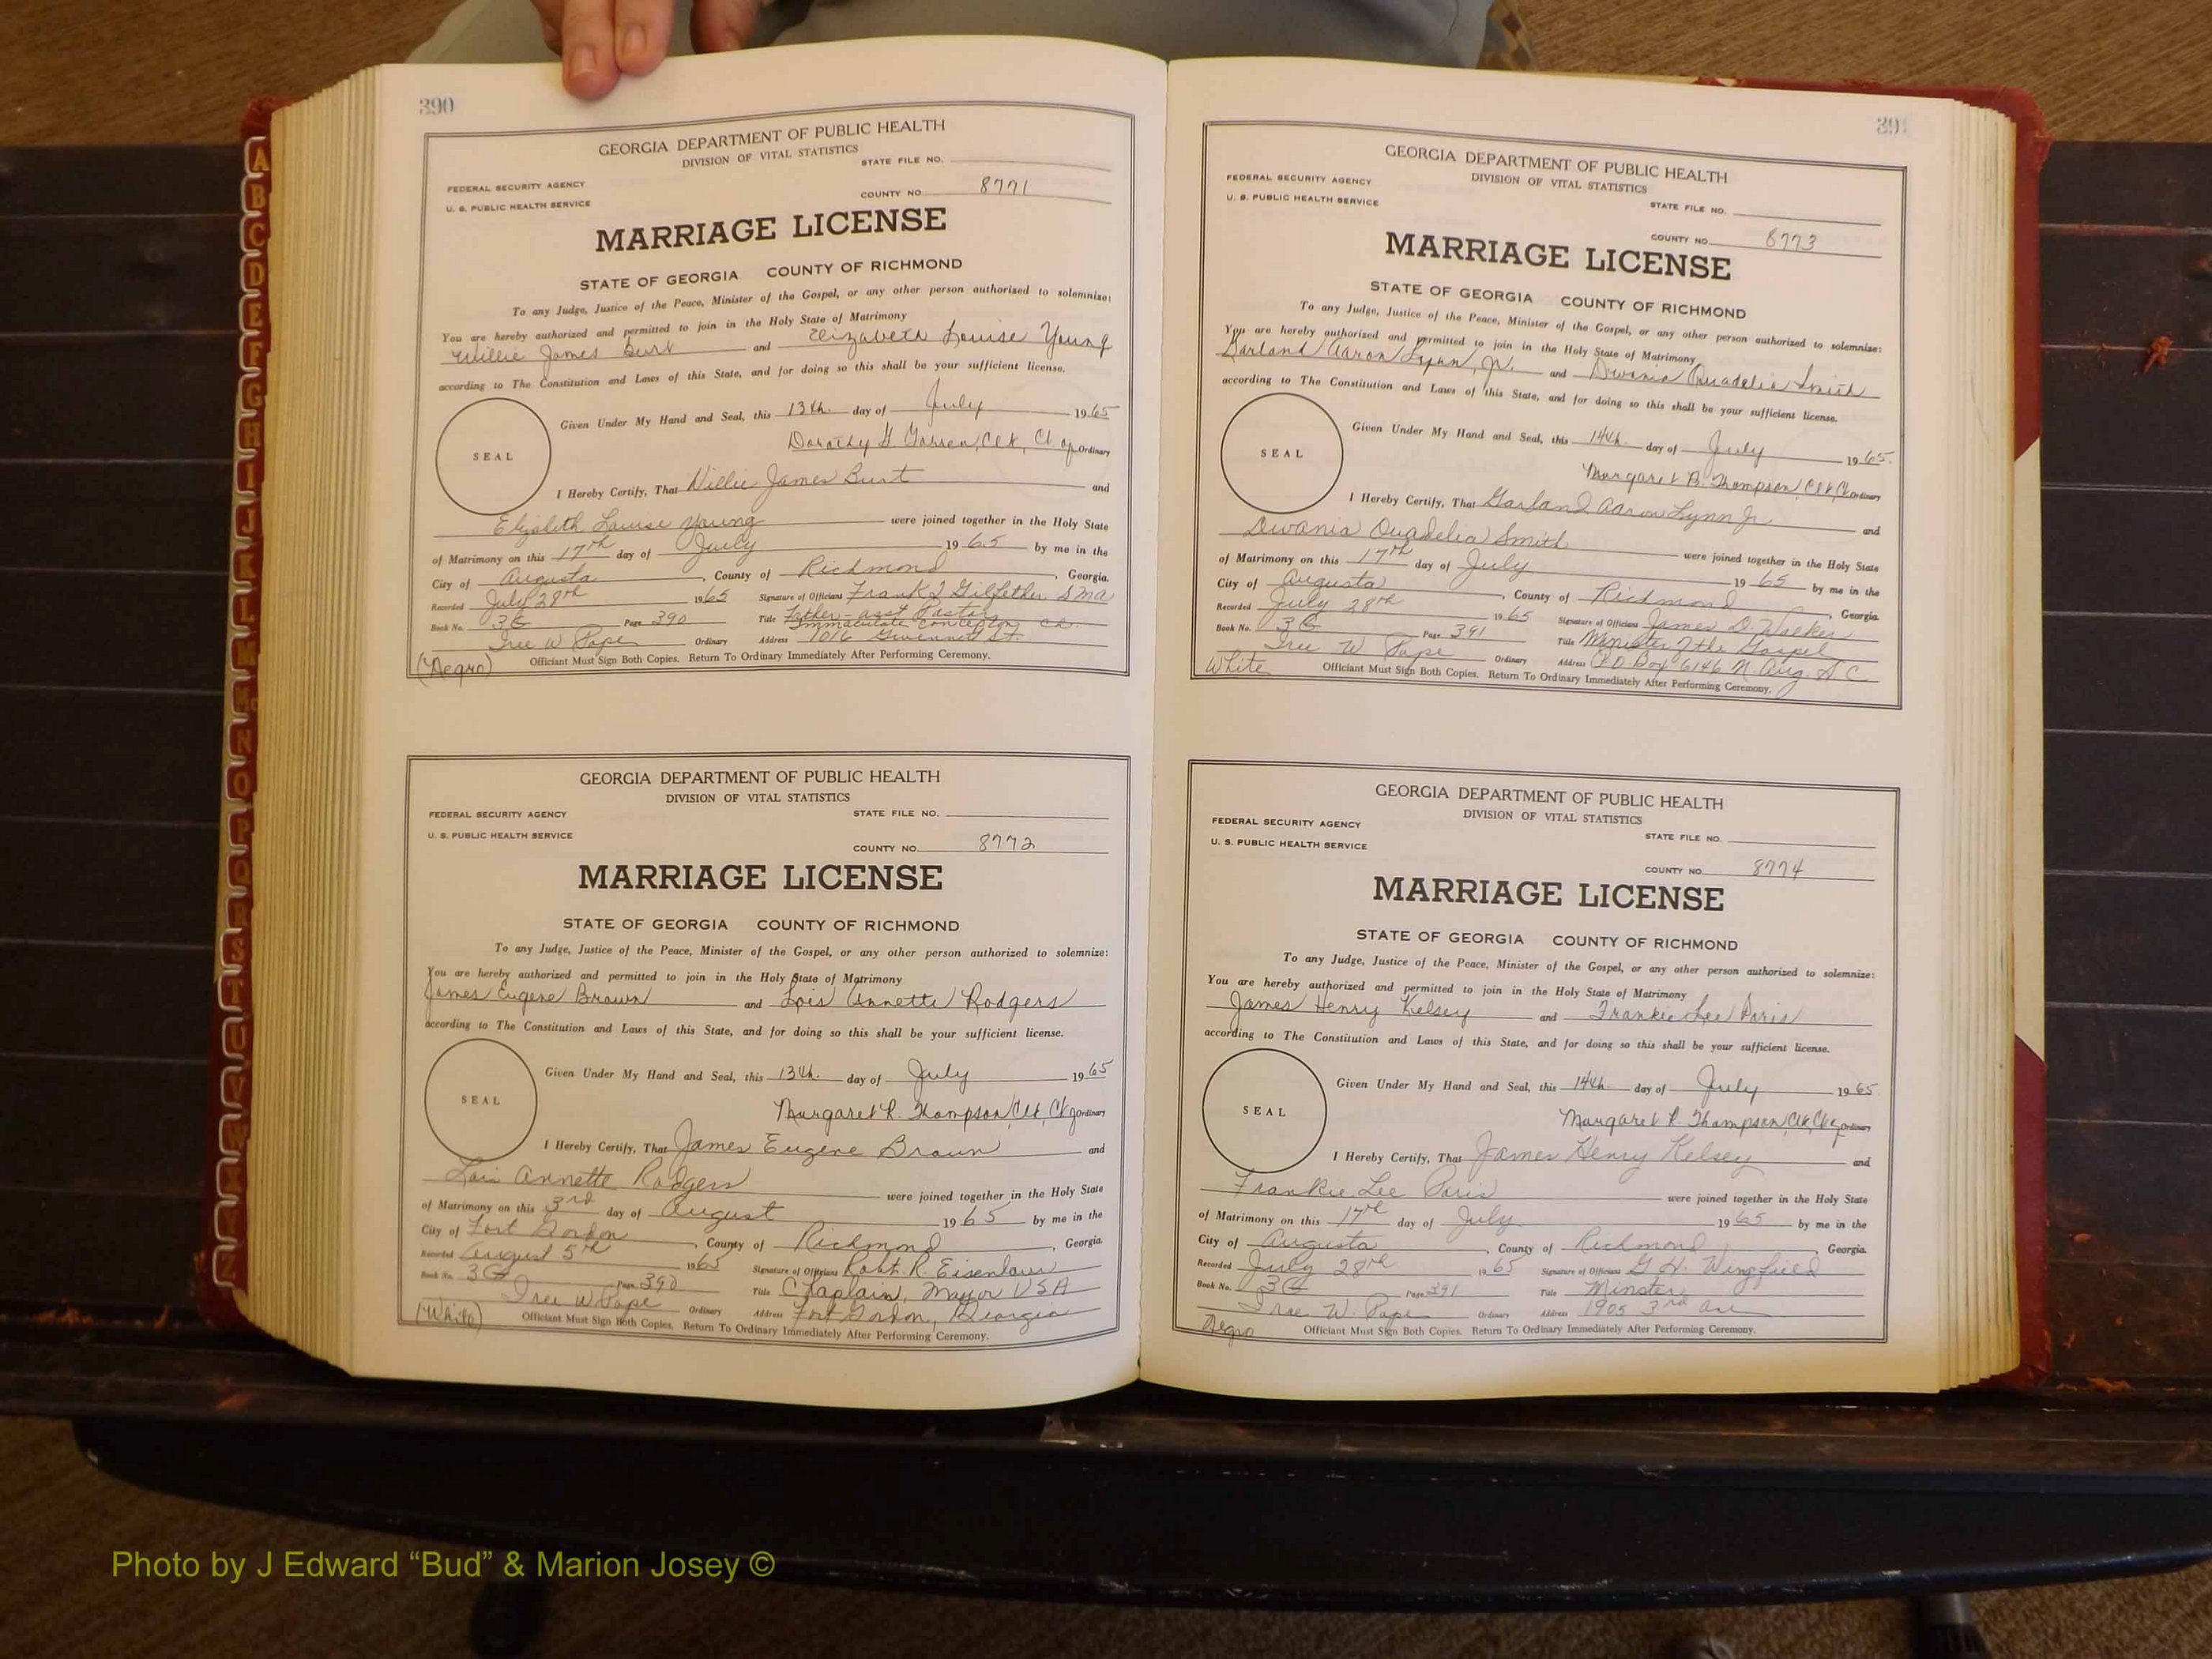 390
GEORGIA DEPARTMENT OF PUBLIC HEALTH
DIVISION OF VITAL STATISTICS
STATE FILE NO.
FEDERAL SECURITY AGENCY
U. S. PUBLIC HEALTH SERVICE
COUNTY NO. 8771
MARRIAGE LICENSE
STATE OF GEORGIA COUNTY OF RICHMOND
To any Judge, Justice of the Peace, Minister of the Gospel, or any other person authorized to solemnize:
You are hereby authorized and permitted to join in the Holy State of Matrimony
Willie James Burt and Elizabeth Louise Young
according to The Constitution and Laws of this State, and for doing so this shall be your sufficient license.
Given Under My Hand and Seal, this 13th. day of July 1965
SEAL
Dorothy Clk, Ct of Ordinary
I Hereby Certify, That Willie James Burt and
Elizabeth Louise Young were joined together in the Holy State
of Matrimony on this 17th day of July 1965 by me in the
City of Augusta, County of Richmond, Georgia.
Recorded July 28th 1965 Signature of Officiant Frank J Gilfether SMA
Book No. 3G Page 390 Title Father - asst Pastor
Immaculate Conception
W Pope Ordinary Address 1016 Gwinnett St.
(Negro) Officiant Must Sign Both Copies. Return To Ordinary Immediately After Performing Ceremony.
GEORGIA DEPARTMENT OF PUBLIC HEALTH
DIVISION OF VITAL STATISTICS
FEDERAL SECURITY AGENCY STATE FILE NO.
U. S. PUBLIC HEALTH SERVICE
COUNTY NO. 8772
MARRIAGE LICENSE
STATE OF GEORGIA COUNTY OF RICHMOND
To any Judge, Justice of the Peace, Minister of the Gospel, or any other person authorized to solemnize:
You are hereby authorized and permitted to join in the Holy State of Matrimony
James Eugene Brown and Lois Annette Rodgers
according to The Constitution and Laws of this State, and for doing so this shall be your sufficient license.
Given Under My Hand and Seal, this 13th. day of July 1965
SEAL
Margaret R. Thompson, Clk, Ct of Ordinary
I Hereby Certify, That James Eugene Brown and
Lois Annette Rodgers were joined together in the Holy State
of Matrimony on this 3rd day of August 1965 by me in the
City of Fort Gordon, County of Richmond, Georgia.
Recorded August 5th 1965 Signature of Officiant Robt. R. Eisenlaur
Book No. 3G Page 390 Title Chaplain, Major USA
W Pope Ordinary Address Fort Gordon, Georgia
(White) Officiant Must Sign Both Copies. Return To Ordinary Immediately After Performing Ceremony.
391
GEORGIA DEPARTMENT OF PUBLIC HEALTH
DIVISION OF VITAL STATISTICS
FEDERAL SECURITY AGENCY
U. S. PUBLIC HEALTH SERVICE
STATE FILE NO.
COUNTY NO. 8773
MARRIAGE LICENSE
STATE OF GEORGIA COUNTY OF RICHMOND
To any Judge, Justice of the Peace, Minister of the Gospel, or any other person authorized to solemnize:
You are hereby authorized and permitted to join in the Holy State of Matrimony
Garland Aaron Lynn, Jr. and Dwania Quadelia Smith
according to The Constitution and Laws of this State, and for doing so this shall be your sufficient license.
Given Under My Hand and Seal, this 14th. day of July 1965.
SEAL
Margaret R. Thompson, Clk, Ct Ordinary
I Hereby Certify, That Garland Aaron Lynn Jr. and
Dwania Quadelia Smith were joined together in the Holy State
of Matrimony on this 17th day of July 1965 by me in the
City of Augusta, County of Richmond, Georgia.
Recorded July 28th 1965 Signature of Officiant James D. Walker
Book No. 3G Page 391 Title Minister of the Gospel
W Pope Ordinary Address P.O. Box 6146 N. Aug. S.C.
White Officiant Must Sign Both Copies. Return To Ordinary Immediately After Performing Ceremony.
GEORGIA DEPARTMENT OF PUBLIC HEALTH
DIVISION OF VITAL STATISTICS
FEDERAL SECURITY AGENCY
STATE FILE NO.
U. S. PUBLIC HEALTH SERVICE
COUNTY NO. 8774
MARRIAGE LICENSE
STATE OF GEORGIA COUNTY OF RICHMOND
To any Judge, Justice of the Peace, Minister of the Gospel, or any other person authorized to solemnize:
You are hereby authorized and permitted to join in the Holy State of Matrimony
James Henry Kelsey and Frankie Lee Paris
according to The Constitution and Laws of this State, and for doing so this shall be your sufficient license.
Given Under My Hand and Seal, this 14th. day of July 1965
SEAL
Margaret R. Thompson, Clk, Ct of Ordinary
I Hereby Certify, That James Henry Kelsey and
Frankie Lee Paris were joined together in the Holy State
of Matrimony on this 17th day of July 1965 by me in the
City of Augusta, County of Richmond, Georgia.
Recorded July 28th 1965 Signature of Officiant G. H. Wingfield
Book No. 3G Page 391 Title Minster
W. Pope Ordinary Address 1905 3rd Ave
Negro Officiant Must Sign Both Copies. Return To Ordinary Immediately After Performing Ceremony.
A
B
C
D
E
F
G
H
I
J
K
L
M
Mc
N
O
P
Q
R
S
T
U
V
W
Z
Photo by J Edward “Bud” & Marion Josey ©